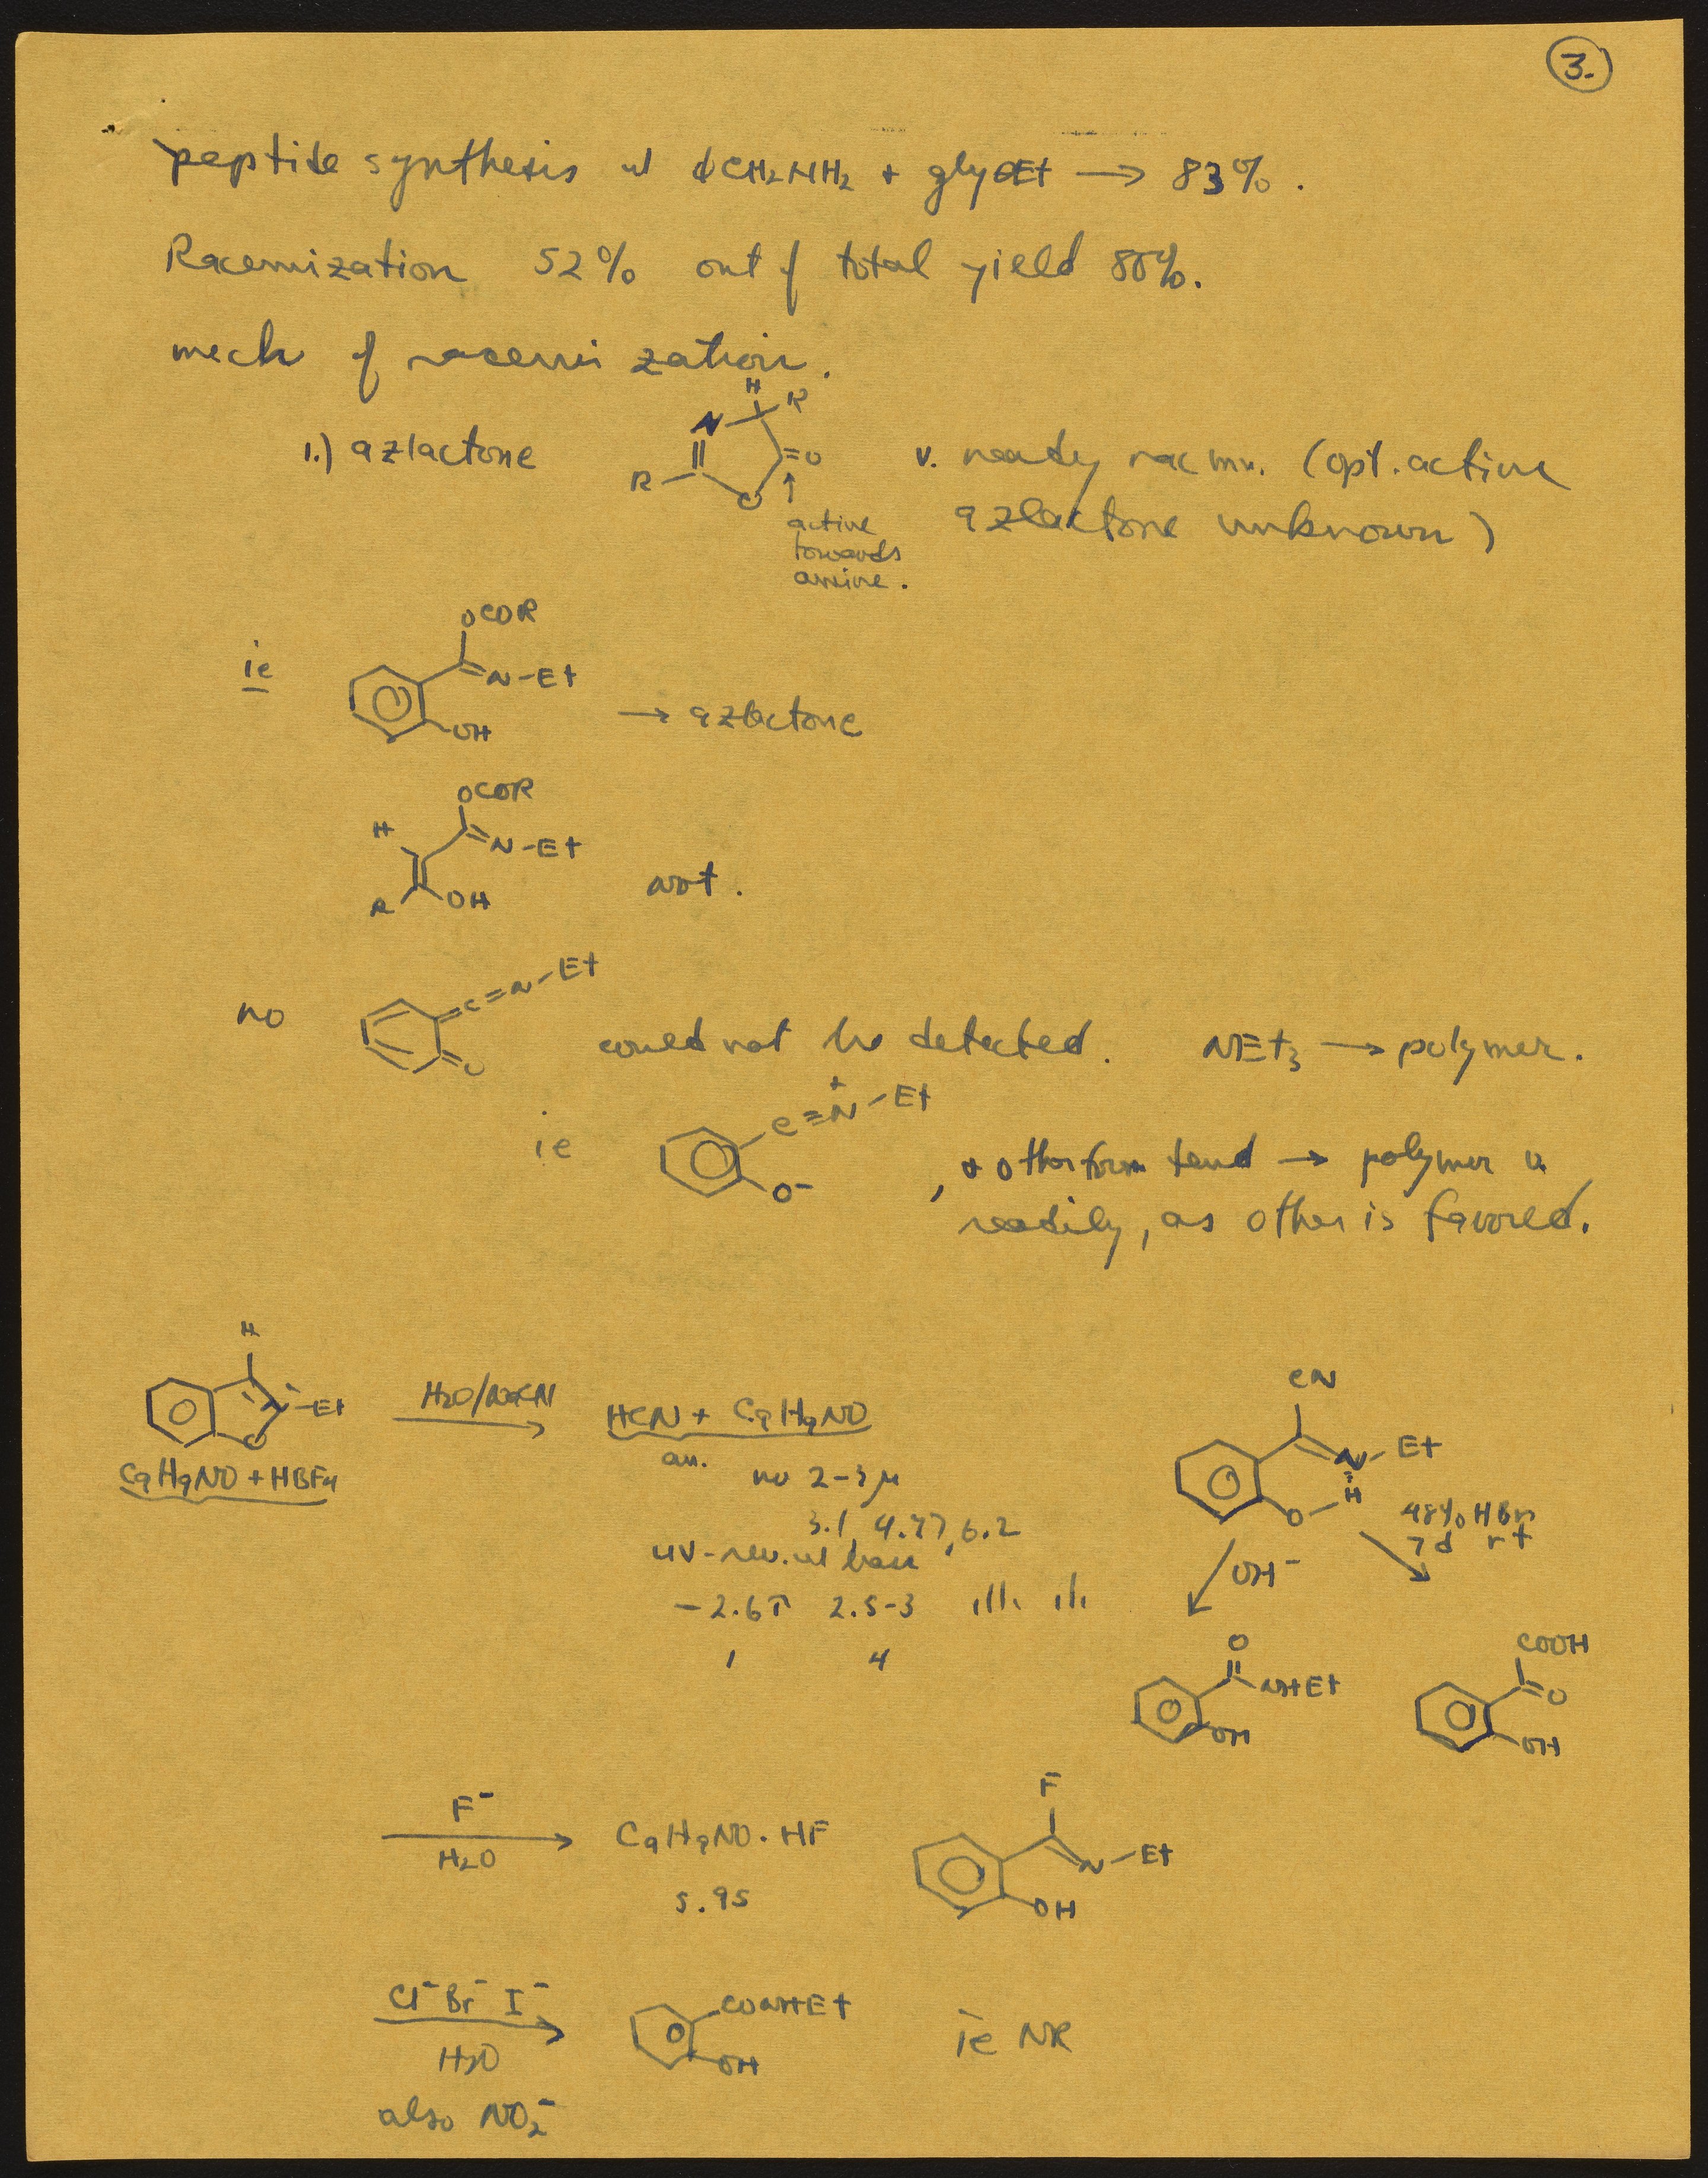 3.
peptide synthesis w/ ϕCH₂NH₂ + glyOEt → 83%.
Racemization 52% out of total yield 80%.
mech of racemization.
1.) azlactone
H
N R
=O
R O
active
towards
amine.
v. ready racmn. (opt. active
azlactone unknown)
ie
OCOR
N-Et
OH
→ azlactone
OCOR
H
N-Et
R OH
not.
no
C=N-Et
O
could not be detected. NEt₃ → polymer.
ie
C≡N⁺-Et
O⁻
, & other form tend → polymer v.
readily, as other is favored.
H
N-Et
O
C₉H₉NO + HBF₄
H₂O/NaCN
HCN + C₉H₉NO
an.
no 2-3 μ
3.1, 4.47, 6.2
UV-rev. w/ base
-2.6τ 2.5-3
1 4
CN
N-Et
H
O
OH⁻
48% HBr
7d rt
O
NHEt
OH
COOH
=O
OH
F⁻
H₂O
C₉H₉NO·HF
5.95
F
N-Et
OH
Cl⁻ Br⁻ I⁻
H₂O
CONHEt
OH
ie NR
also NO₂⁻